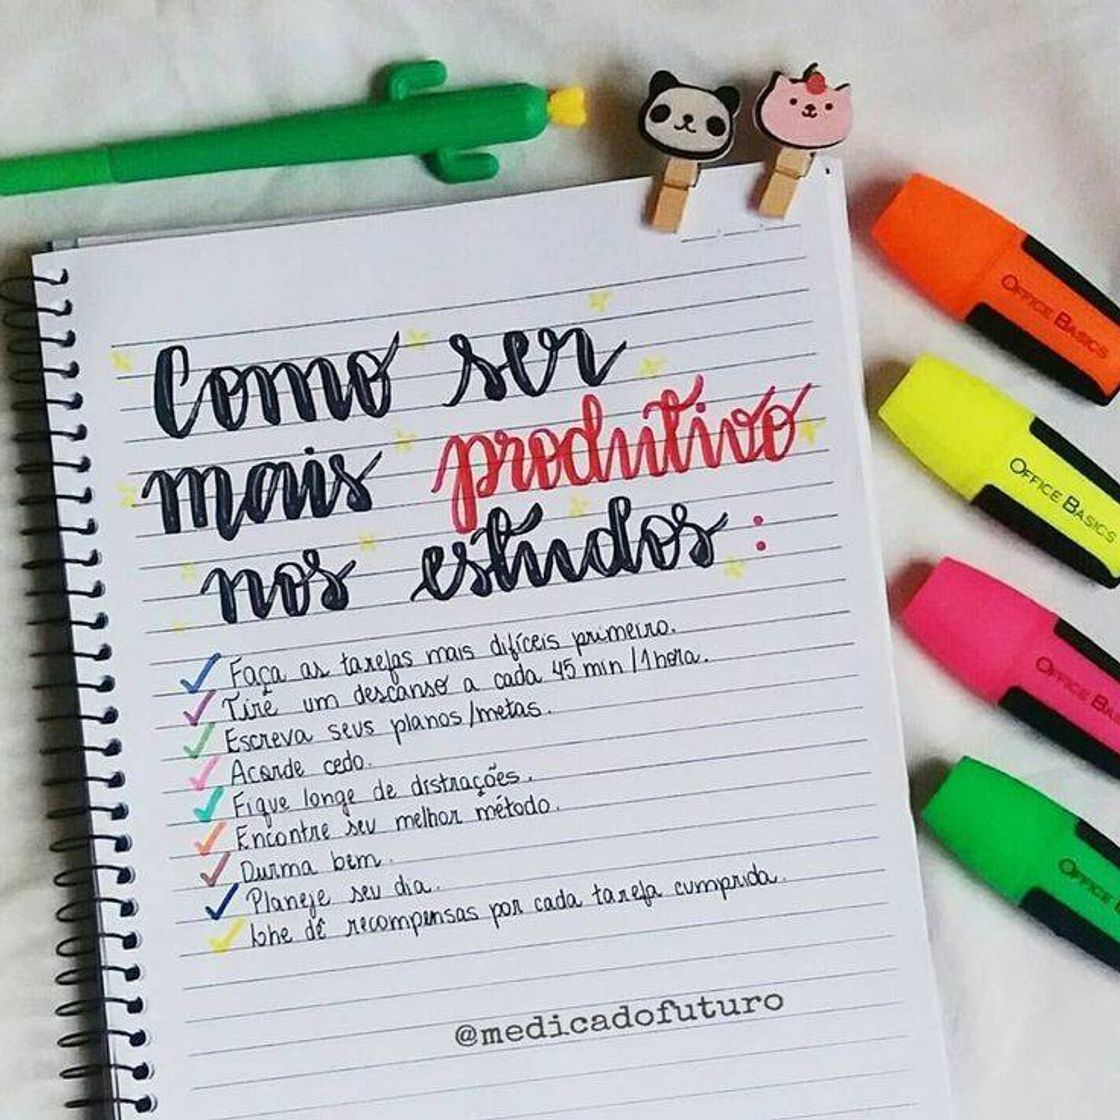 Como ser
mais produtivo
nos estudos:
Faça as tarefas mais difíceis primeiro.
Tire um descanso a cada 45 min/1hora.
Escreva seus planos/metas.
Acorde cedo.
Fique longe de distrações.
Encontre seu melhor método.
Durma bem.
Planeje seu dia.
Lhe dê recompensas por cada tarefa cumprida.
@medicadofuturo
OFFICE BASICS
OFFICE BASICS
OFFICE BA
OFFICE